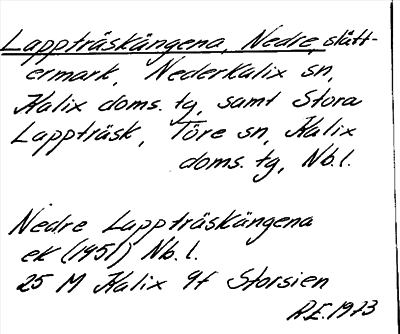 Lappträskängena, Nedre, slått-
ermark, Nederkalix sn,
Kalix doms. tg, samt Stora
Lappträsk, Töre sn, Kalix
doms. tg, Nb.l.
Nedre Lappträskängena
ek (1951) Nb.l.
25 M Kalix 9f Storsien
R.E. 1973